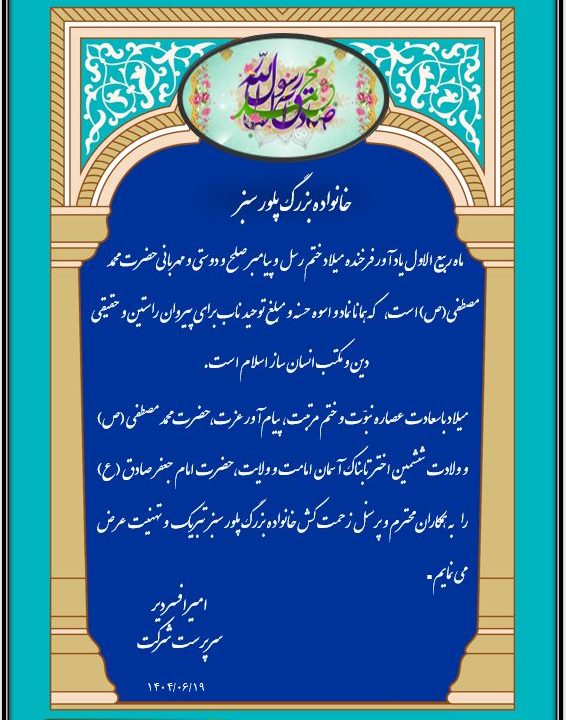 محمد رسول الله
خانواده بزرگ پلور سبز
ماه ربیع الاول یادآور فرخنده میلاد ختم رسل و پیامبر صلح و دوستی و مهربانی حضرت محمد
مصطفی (ص) است، که همانا نماد و اسوه حسنه و مبلغ توحید ناب برای پیروان راستین و حقیقی
دین و مکتب انسان ساز اسلام است.
میلاد باسعادت عصاره نبوّت و ختم مرتبت، پیام آور عزت، حضرت محمد مصطفی (ص)
و ولادت ششمین اختر تابناک آسمان امامت و ولایت، حضرت امام جعفر صادق (ع)
را به همکاران محترم و پرسنل زحمت کش خانواده بزرگ پلور سبز تبریک و تهنیت عرض
می نمایم.
امیر افسردیر
سرپرست شرکت
۱۴۰۴/۰۶/۱۹